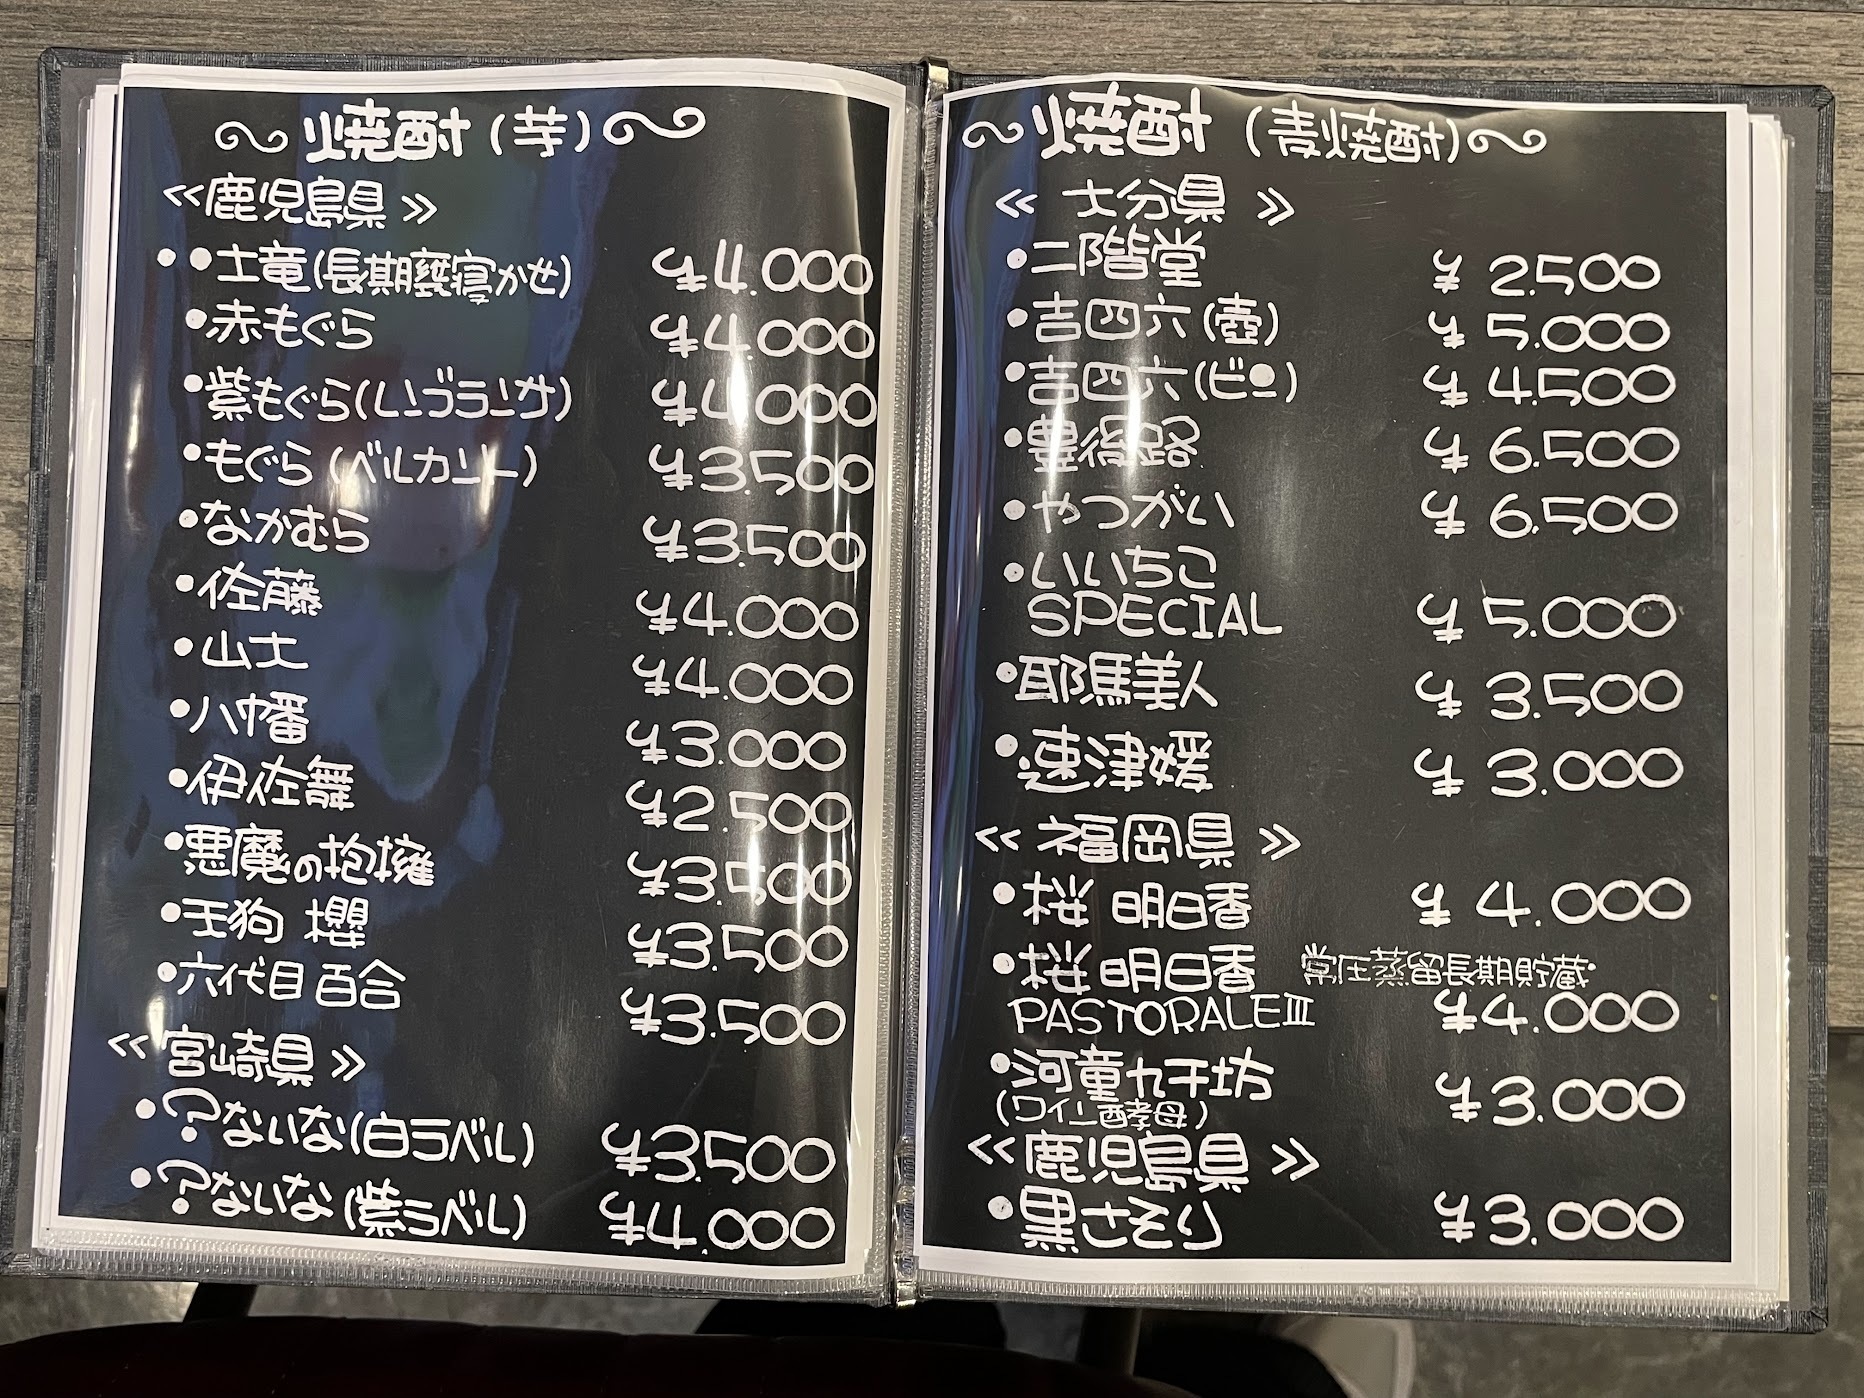 焼酎(芋)
≪鹿児島県≫
••土竜(長期甕寝かせ) ¥4.000
•赤もぐら ¥4.000
•紫もぐら(レンブラント) ¥4.000
•もぐら(ベルカント) ¥3.500
•なかむら ¥3.500
•佐藤 ¥4.000
•山士 ¥4.000
•八幡 ¥3.000
•伊佐舞 ¥2.500
•悪魔の抱擁 ¥3.500
•玉狗 櫻 ¥3.500
•六代目百合 ¥3.500
≪宮崎県≫
•?ないな(白ラベル) ¥3.500
•?ないな(紫ラベル) ¥4.000
焼酎(麦焼酎)
≪大分県≫
•二階堂 ¥2.500
•吉四六(壺) ¥5.000
•吉四六(ビン) ¥4.500
•豊後路 ¥6.500
•やつがい ¥6.500
•いいちこ
SPECIAL ¥5.000
•耶馬美人 ¥3.500
•速津媛 ¥3.000
≪福岡県≫
•桜明日香 ¥4.000
•桜明日香 常圧蒸留長期貯蔵
PASTORALEⅢ ¥4.000
•河童九千坊 ¥3.000
(ワイン酵母)
≪鹿児島県≫
•黒さそり ¥3.000